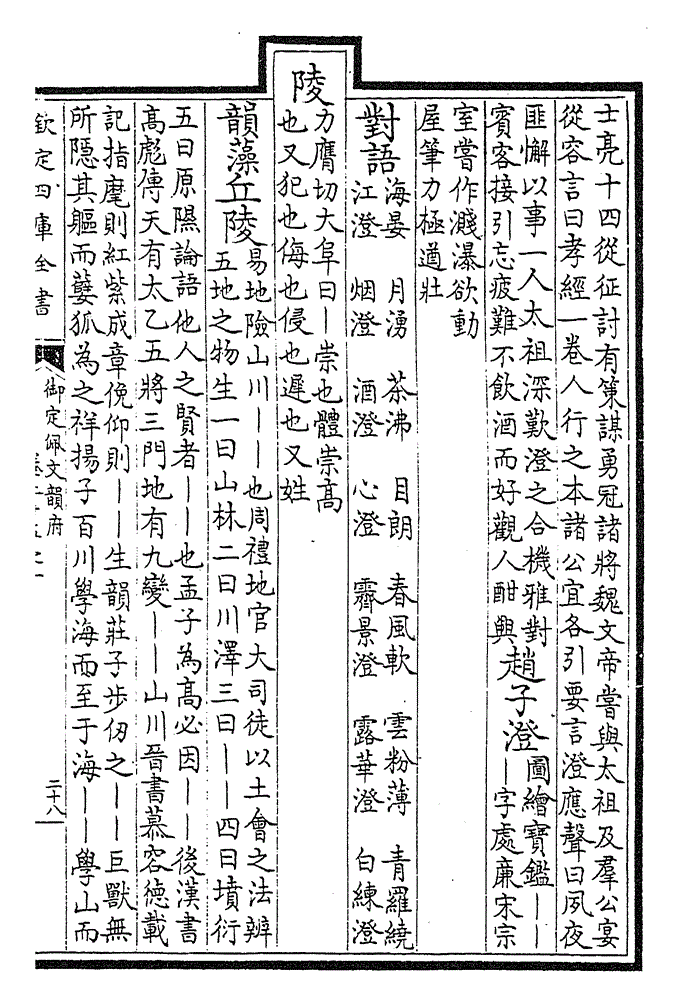 士亮十四從征討有策謀勇冠諸將魏文帝嘗與太祖及羣公宴
從容言曰孝經一卷人行之本諸公宜各引要言澄應聲曰夙夜
匪懈以事一人太祖深歎澄之合機雅對
賓客接引忘疲難不飲酒而好觀人酣興
趙子澄
圖繪寶鑑丨丨
丨字處廉宋宗
室嘗作濺瀑欲動
屋筆力極遒壯
對語
海晏 月湧 茶沸 目朗 春風軟 雲粉薄 青羅繞
江澄 烟澄 酒澄 心澄 霽景澄 露華澄 白練澄
陵
力膺切大阜曰丨崇也體崇高
也又犯也侮也侵也遲也又姓
韻藻
丘陵
易地險山川丨丨也周禮地官大司徒以土會之法辨
五地之物生一曰山林二曰川澤三曰丨丨四曰墳衍
五曰原隰論語他人之賢者丨丨也孟子為高必因丨丨後漢書
高彪傳天有太乙五將三門地有九變丨丨山川晉書慕容德載
記指麾則紅紫成章俛仰則丨丨生韻莊子步仞之丨丨巨獸無
所隱其軀而㜸狐為之祥揚子百川學海而至于海丨丨學山而
欽定四庫全書
御定佩文韻府
二十八